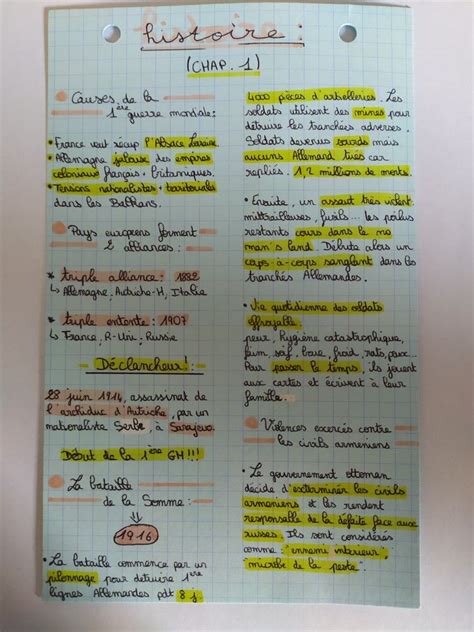 histoire :
(CHAP. 1)
Causes de la
1ère guerre mondiale :
• France veut récup l'Alsace Loraine
• Allemagne jalouse des empires
coloniaux français + britanniques.
• Tensions nationalistes + territoriales
dans les Balkans.
Pays européens forment
2 alliances :
* triple alliance : 1882
↳ Allemagne, Autriche-H, Italie
* triple entente : 1907
↳ France, R-Uni, Russie
Déclancheur! :
28 juin 1914, assassinat de
l'archiduc d'Autriche, par un
nationaliste Serbe, à Sarajevo.
Début de la 1ère GM!!!
La bataille
de la Somme :
1916
• La bataille commence par un
pilonnage pour détruire 1ère
lignes Allemandes pdt 8 j.
400 pièces d'artielleries. Les
soldats utilisent des mines pour
détruire les tranchées adverses.
Soldats devenus sourds mais
aucuns Allemand tués car
repliés. 1,2 millions de morts.
• Ensuite, un assaut très violent
mittrailleuses, fusils... les poilus
restants cours dans le no
man's land. Débute alors un
corps-à-corps sanglant dans les
tranchés Allemandes.
• Vie quotidienne des soldats
effroyable
peur, hygiène catastrophique,
faim, soif, boue, froid, rats, poux...
Pour passer le temps, ils jouent
aux cartes et écrivent à leur
famille.
Violences exercés contre
les civils armeniens
• Le gouvernement ottoman
décide d'exterminer les civils
armeniens et les rendent
responsable de la défaite face aux
russes. Ils sont considérés
comme "ennemi intérieur",
"microbe de la peste".